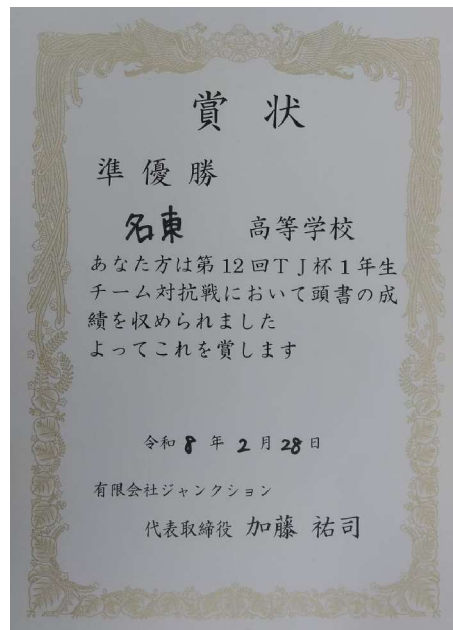 賞状
準優勝
名東 高等学校
あなた方は第12回TJ杯1年生
チーム対抗戦において頭書の成
績を収められました
よってこれを賞します
令和8年2月28日
有限会社ジャンクション
代表取締役 加藤 祐司